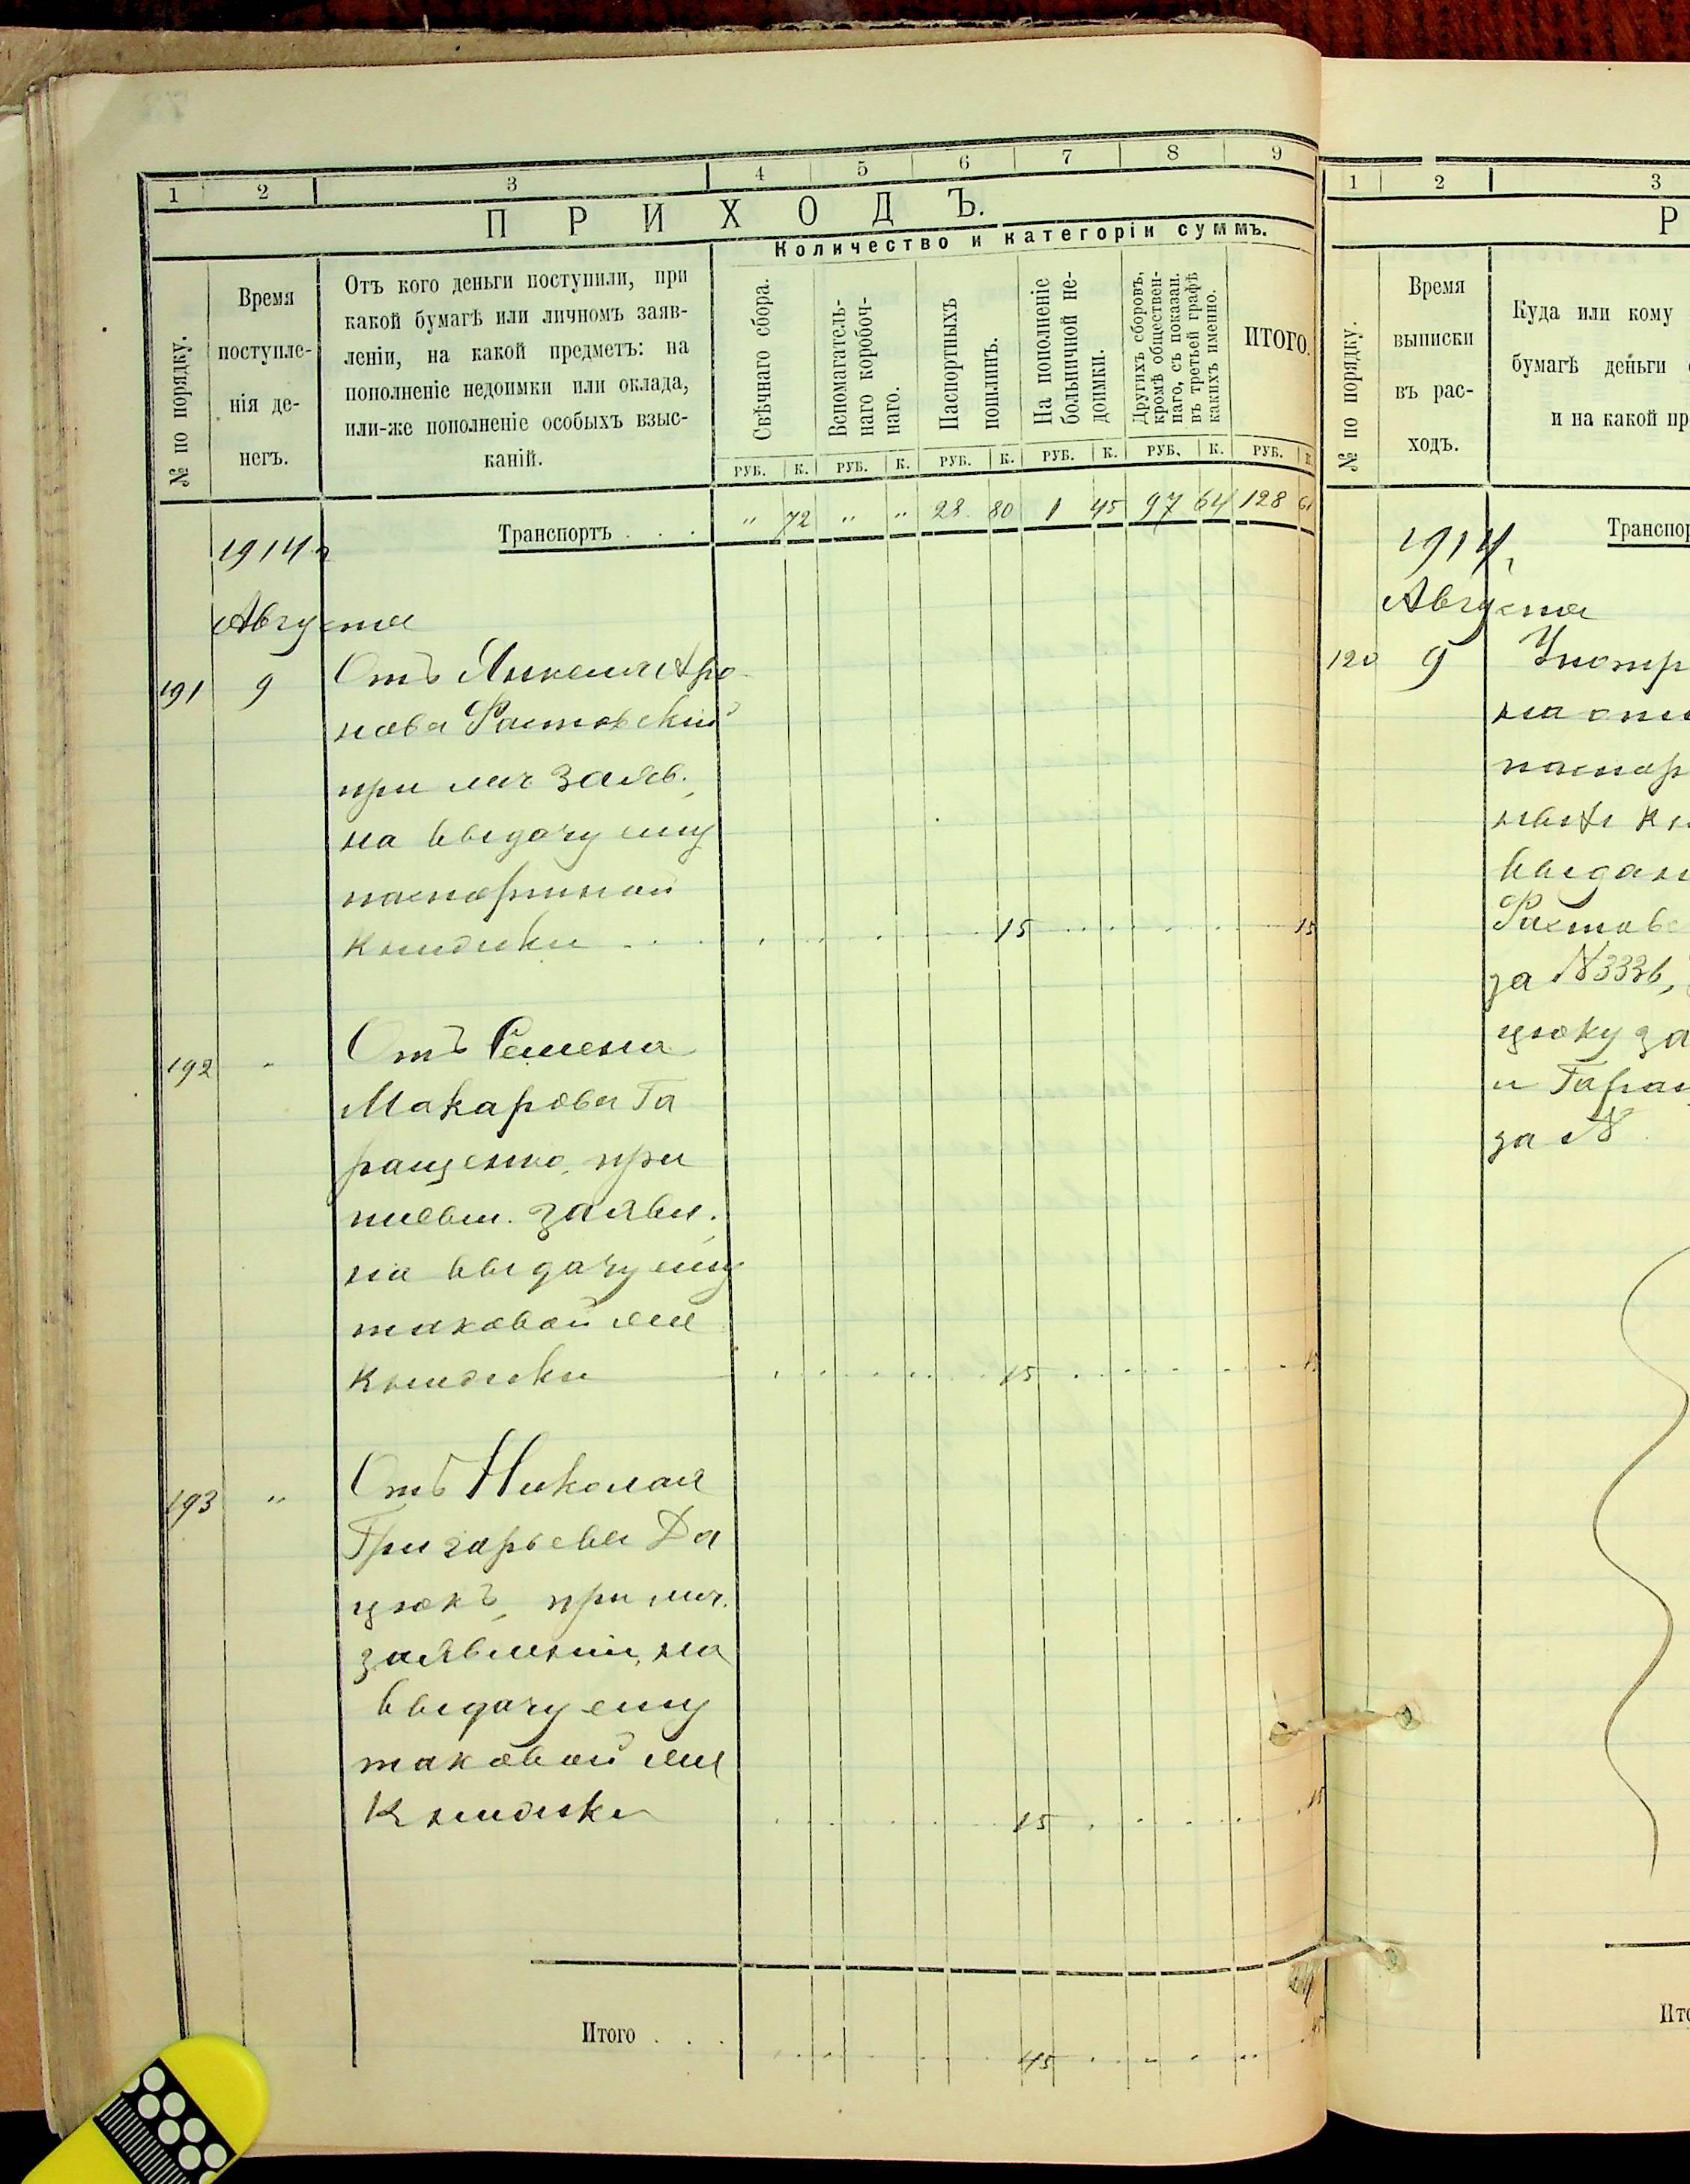 1 2 3 4 5 6 7 8 9
ПРИХОДЪ.
Количество и категоріи суммъ.
№ по порядку.
Время
поступле-
нія де-
негъ.
Отъ кого деньги поступили, при
какой бумагѣ или личномъ заяв-
леніи, на какой предметъ: на
пополненіе недоимки или оклада,
или-же пополненіе особыхъ взыс-
каній.
Свѣчнаго сбора.
Вспомагатель-
наго коробоч-
наго.
Паспортныхъ
пошлинъ.
На пополненіе
больничной не-
доимки.
Другихъ сборовъ,
кромѣ обществен-
наго, съ показан.
въ третьей графѣ
какихъ именно.
ИТОГО.
РУБ. К. РУБ. К. РУБ. К. РУБ. К. РУБ. К. РУБ. К.
Транспортъ . . . " 72 " " 28 80 1 45 97 64 128 61
1914 г
Августа
191 9 Отъ Янкеля Аро-
нова Растовскій
при лич заяв.,
на выдачу ему
паспортной
книжки 15 15
192 " Отъ Семена
Макарова Га
ращенко, при
письм. заявл.,
на выдачу ему
таковой же
книжки 15 15
193 " Отъ Николая
Григорьева Да
цюкъ, при лич.
заявленіи, на
выдачу ему
таковой же
книжки 15 15
Итого . . . 45 45
1 2 3
Р
№ по порядку.
Время
выписки
въ рас-
ходъ.
Куда или кому
бумагѣ деньги
и на какой пр
Транспор
1914,
Августа
120 9 Употр
на
паспор
ныхъ кн
выдан
Растовс
за №3336,
цюку за
и Гаращ
за №
Ито